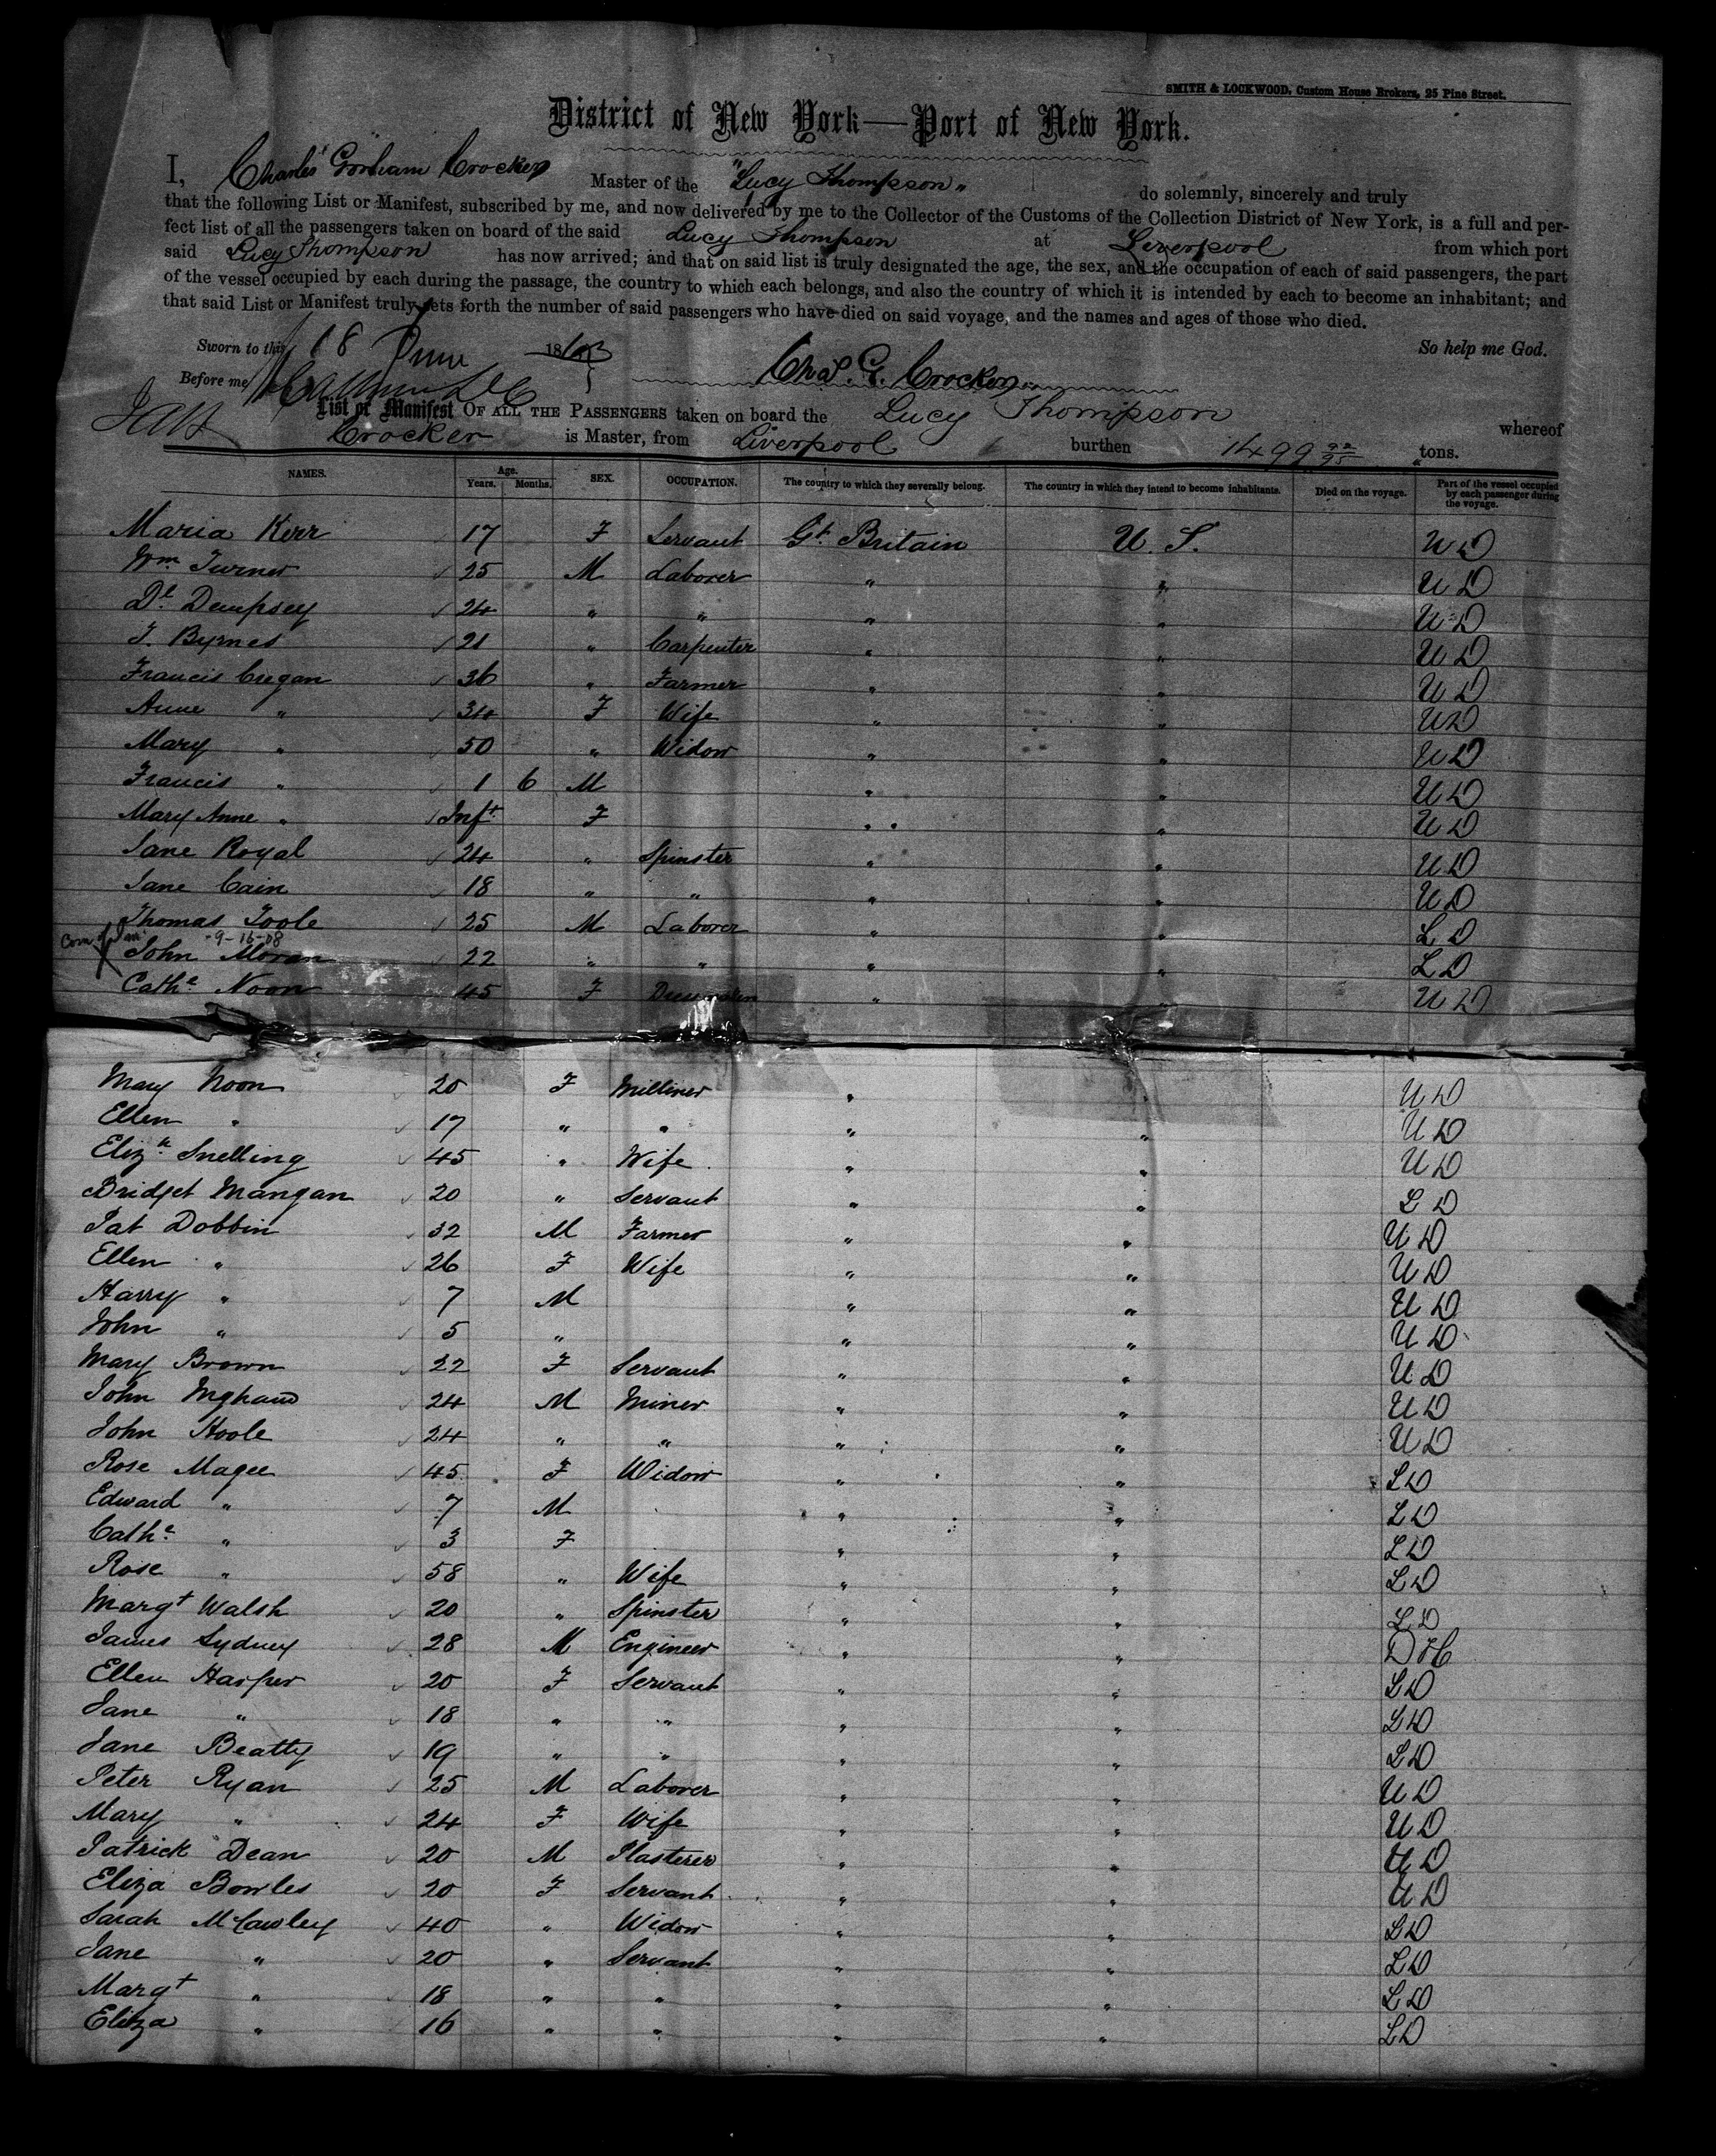 SMITH & LOCKWOOD, Custom House Brokers, 25 Pine Street.
District of New York—Port of New York.
I, Charles Gorham Crocker Master of the "Lucy Thompson" do solemnly, sincerely and truly
that the following List or Manifest, subscribed by me, and now delivered by me to the Collector of the Customs of the Collection District of New York, is a full and per-
fect list of all the passengers taken on board of the said Lucy Thompson at Liverpool from which port
said Lucy Thompson has now arrived; and that on said list is truly designated the age, the sex, and the occupation of each of said passengers, the part
of the vessel occupied by each during the passage, the country to which each belongs, and also the country of which it is intended by each to become an inhabitant; and
that said List or Manifest truly sets forth the number of said passengers who have died on said voyage, and the names and ages of those who died.
Sworn to this 18 June 18 So help me God.
Before me Chas. G. Crocker
List or Manifest OF ALL THE PASSENGERS taken on board the Lucy Thompson whereof
Crocker is Master, from Liverpool burthen 1499 92/95 tons.
NAMES. Age. Years. Months. SEX. OCCUPATION. The country to which they severally belong. The country in which they intend to become inhabitants. Died on the voyage. Part of the vessel occupied by each passenger during the voyage.
Maria Kerr 17 F Servant Gt. Britain U. S. U D
Wm Turner 25 M Laborer " " U D
Dl. Dempsey 24 " " " " U D
T. Byrnes 21 " Carpenter " " U D
Francis Cregan 36 " Farmer " " U D
Anne " 34 F Wife " " U D
Mary " 50 " Widow " " U D
Francis " 1 6 M " " U D
Mary Anne " Inft F " " U D
Jane Royal 24 " Spinster " " U D
Jane Cain 18 " " " " U D
Thomas Toole 25 M Laborer " " L D
-9-16-08
John Moran 22 " " " " L D
Cathe Noon 45 F " " U D
Mary Noon 20 F Milliner " " U D
Ellen " 17 " " " " U D
Elizth Snelling 45 " Wife " " U D
Bridget Mangan 20 " Servant " " L D
Pat Dobbin 32 M Farmer " " U D
Ellen " 26 F Wife " " U D
Harry " 7 M " " U D
John " 5 " " " U D
Mary Brown 22 F Servant " " U D
John Ingham 24 M Miner " " U D
John Hoole 24 " " " " U D
Rose Magee 45 F Widow " " L D
Edward " 7 M " " L D
Cathe " 3 F " " L D
Rose " 58 " Wife " " L D
Margt Walsh 20 " Spinster " " L D
James Sydney 28 M Engineer " " D H
Ellen Harper 20 F Servant " " L D
Jane " 18 " " " " L D
Jane Beatty 19 " " " " L D
Peter Ryan 25 M Laborer " " U D
Mary " 24 F Wife " " U D
Patrick Dean 20 M Plasterer " " U D
Eliza Bowles 20 F Servant " " U D
Sarah McCawley 40 " Widow " " L D
Jane " 20 " Servant " " L D
Margt " 18 " " " " L D
Eliza " 16 " " " " L D